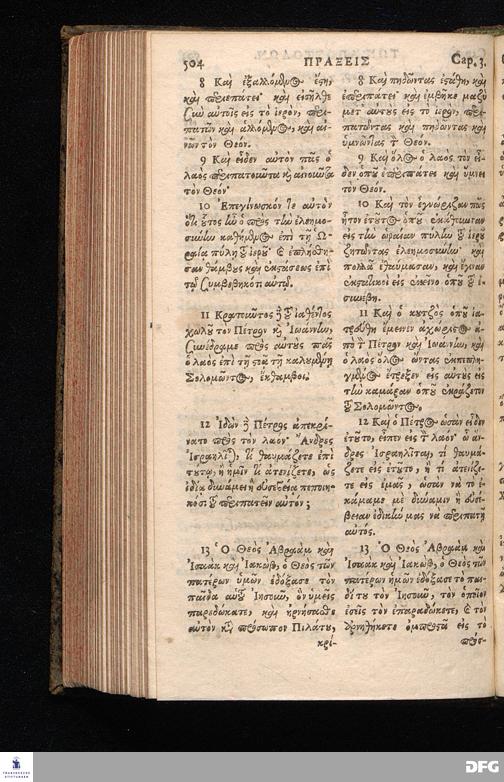 504 ΠΡΑΞΕΙΣ Cap. 3.
8 Καὶ ἐξαλλόμενος ἔστη,
καὶ περιεπάτει· καὶ εἰσῆλθε
σὺν αὐτοῖς εἰς τὸ ἱερὸν, περι-
πατῶν καὶ ἁλλόμενος, καὶ αἰ-
νῶν τὸν Θεόν.
9 Καὶ εἶδεν αὐτὸν πᾶς ὁ
λαὸς περιπατοῦντα καὶ αἰνοῦντα
τὸν Θεόν·
10 Ἐπεγίνωσκόν τε αὐτὸν
ὅτι οὗτος ἦν ὁ πρὸς τὴν ἐλεημο-
σύνην καθήμενος ἐπὶ τῇ Ὡ-
ραίᾳ πύλῃ τοῦ ἱεροῦ· καὶ ἐπλήσθη-
σαν θάμβους καὶ ἐκστάσεως ἐπὶ
τῷ συμβεβηκότι αὐτῷ.
11 Κρατοῦντος δὲ τοῦ ἰαθέντος
χωλοῦ τὸν Πέτρον καὶ Ἰωάννην,
συνέδραμε πρὸς αὐτοὺς πᾶς
ὁ λαὸς ἐπὶ τῇ στοᾷ τῇ καλουμένῃ
Σολομῶντος, ἔκθαμβοι.
12 Ἰδὼν δὲ Πέτρος ἀπεκρί-
νατο πρὸς τὸν λαόν· Ἄνδρες
Ἰσραηλῖται, τί θαυμάζετε ἐπὶ
τούτῳ, ἢ ἡμῖν τί ἀτενίζετε, ὡς
ἰδίᾳ δυνάμει ἢ εὐσεβείᾳ πεποιη-
κόσι τοῦ περιπατεῖν αὐτόν;
13 Ὁ Θεὸς Ἀβραὰμ καὶ
Ἰσαὰκ καὶ Ἰακὼβ, ὁ Θεὸς τῶν
πατέρων ἡμῶν ἐδόξασε τὸν
παῖδα αὑτοῦ Ἰησοῦν, ὃν ὑμεῖς
παρεδώκατε, καὶ ἠρνήσασθε
αὐτὸν κατὰ πρόσωπον Πιλάτου,
κρί-
8 Καὶ πηδῶντας ἐστάθη, καὶ
ἐπεριπάτει· καὶ ἐμβῆκε μαζὺ
μετ' αὐτοὺς εἰς τὸ ἱερὸν, περι-
πατῶντας καὶ πηδῶντας καὶ
ὑμνῶντας τὸν Θεόν.
9 Καὶ ὅλος ὁ λαὸς τὸν εἶ-
δεν ὁποῦ ἐπεριπάτει καὶ ὕμνει
τὸν Θεόν.
10 Καὶ τὸν ἐγνώριζαν πῶς
ἦτον ἐτοῦτος ὁποῦ ἐκάθουνταν
εἰς τὴν ὡραίαν πύλην τοῦ ἱεροῦ
ζητῶντας ἐλεημοσύνην· καὶ
πολλὰ ἐθαύμασαν, καὶ ἔγιναν
ἐκστατικοὶ εἰς ἐκεῖνο ὁποῦ τοῦ ἐ-
συνέβη.
11 Καὶ ὁ κουτζὸς ὁποῦ ἰα-
τρεύθη ἔμεινεν ἀχώριστος ἀ-
πὸ τὸν Πέτρον καὶ Ἰωάννην, καὶ
ὁ λαὸς ὅλος ὄντας ἐκπεπλη-
γμένος ἔτρεξεν εἰς αὐτοὺς εἰς
τὴν καμάραν ὁποῦ ἐκράζετο
τοῦ Σολομῶντος.
12 Καὶ ὁ Πέτρος ὡσὰν εἶδεν
ἐτοῦτο, εἶπεν εἰς τὸν λαόν· ὦ ἄν-
δρες Ἰσραηλῖται, τί θαυμά-
ζετε εἰς ἐτοῦτο, ἢ τί ἀτενίζε-
τε εἰς ἐμᾶς, ὡσὰν νὰ τὸ ἐ-
κάμαμε μὲ δύναμιν ἢ εὐσέ-
βειαν ἐδικήν μας νὰ περιπατῇ
αὐτός.
13 Ὁ Θεὸς Ἀβραὰμ καὶ
Ἰσαὰκ καὶ Ἰακὼβ, ὁ Θεὸς τῶν
πατέρων ἡμῶν ἐδόξασε τὸ παι-
δί του τὸν Ἰησοῦν, τὸν ὁποῖον
ἐσεῖς τὸν ἐπαραδώκετε, καὶ τὸν
ἀρνηθήκετε ὀμπροστὰ εἰς τὸ
πρόσ-
FRANCKESCHE
STIFTUNGEN
DFG